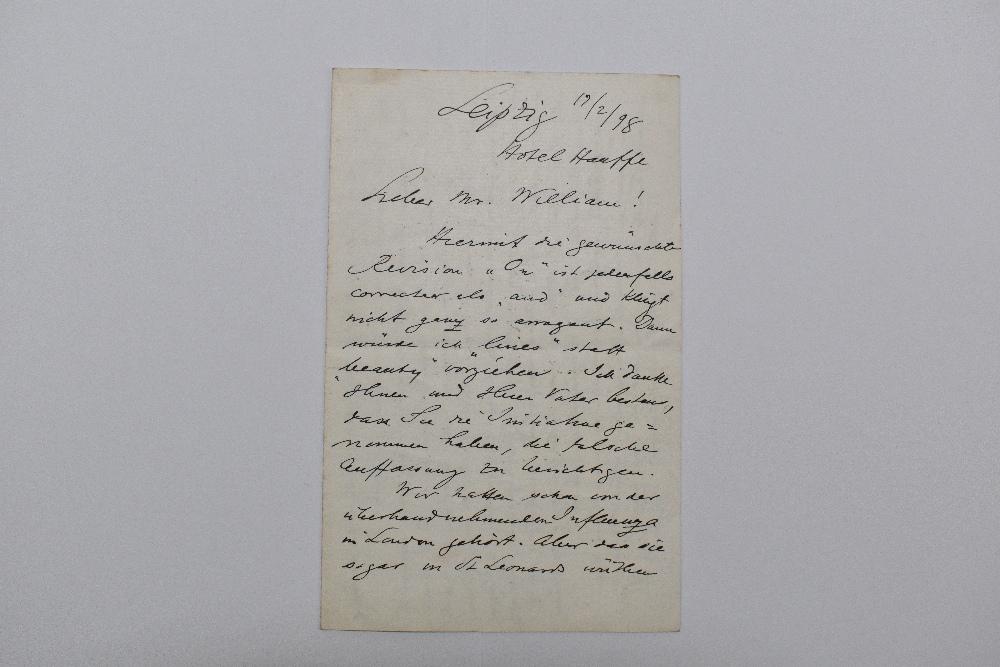 Leipzig 17/2/98
Hotel Hauffe
Lieber Mr. William!
Hiermit die gewünschte
Revision „On“ ist jedenfalls
correcter als „and“ und klingt
nicht ganz so arrogant. Dann
würde ich „lines“ statt
„beauty“ vorziehen. Ich danke
Ihnen und Ihrem Vater bestens,
dass Sie die Initiative ge=
nommen haben, die falsche
Auffassung zu berichtigen.
Wir hatten schon von der
überhandnehmenden Influenza
in London gehört. Aber das sie
sogar in St Leonards wüthen